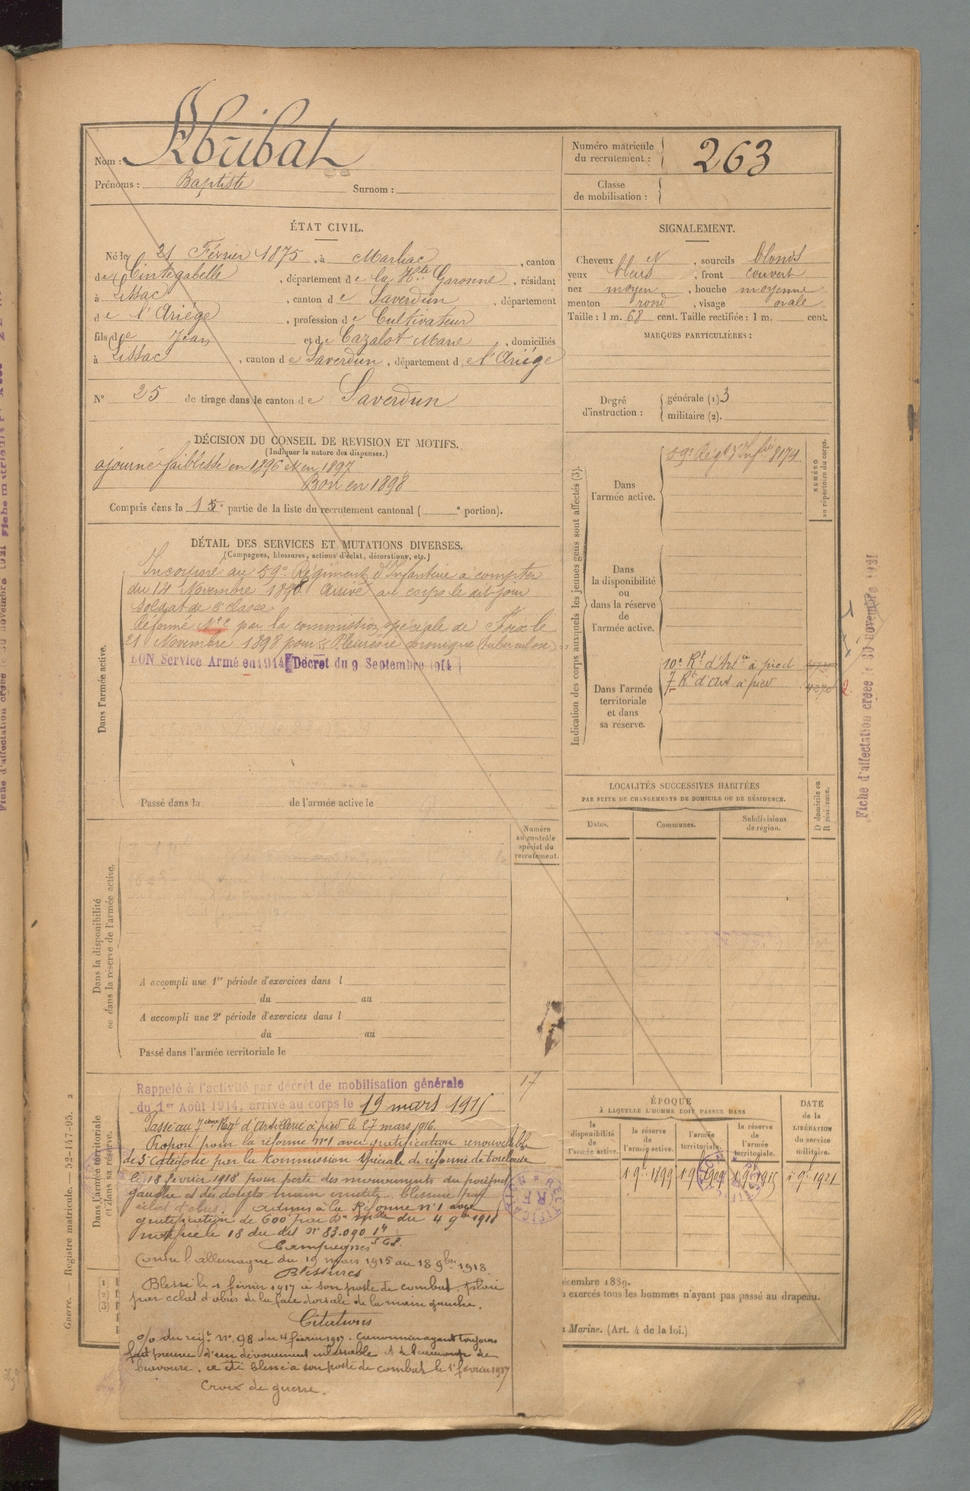 Nom : Abribat
Prénoms : Baptiste Surnom :
Numéro matricule du recrutement : 263
Classe de mobilisation :
ÉTAT CIVIL.
Né le 21 Février 1875, à Marliac, canton
de Cintegabelle, département de la Hte Garonne, résidant
à Lissac, canton de Saverdun, département
de l'Ariége, profession de Cultivateur
fils de Jean et de Cazalot Marie, domiciliés
à Lissac, canton de Saverdun, département de l'Ariége
N° 25 de tirage dans le canton de Saverdun
SIGNALEMENT.
Cheveux N, sourcils blonds
yeux bleus, front couvert
nez moyen, bouche moyenne
menton rond, visage ovale
Taille : 1 m. 68 cent. Taille rectifiée : 1 m. cent.
MARQUES PARTICULIÈRES :
Degré d'instruction : générale (1) 3
militaire (2).
DÉCISION DU CONSEIL DE REVISION ET MOTIFS.
(Indiquer la nature des dispenses.)
ajourné faiblesse en 1896 et en 1897
Bon en 1898
Compris dans la partie de la liste du recrutement cantonal ( e portion).
DÉTAIL DES SERVICES ET MUTATIONS DIVERSES.
(Campagnes, blessures, actions d'éclat, décorations, etc.)
Dans l'armée active.
Incorporé au 59e Régiment d'Infanterie à compter
du 14 Novembre 1898 Arrivé au corps le dit jour
Soldat de 2e classe
Réformé N° 2 par la commission spéciale de Foix le
21 Novembre 1898 pour Pleurésie chronique tuberculose
BON Service Armé en 1914 Décret du 9 Septembre 1914
Passé dans la de l'armée active le
Indication des corps auxquels les jeunes gens sont affectés (3).
NUMÉRO au répertoire du corps.
Dans l'armée active.
59e Régt d'Infrie 8174
Dans la disponibilité ou dans la réserve de l'armée active.
Dans l'armée territoriale et dans sa réserve.
10e Rt d'Artie à pied
7 Rt d'Art à pied
LOCALITÉS SUCCESSIVES HABITÉES
PAR SUITE DE CHANGEMENTS DE DOMICILE OU DE RÉSIDENCE.
Dates. Communes. Subdivisions de région.
D domicile ou R résidence.
Fiche d'affectation créée le 30 novembre 1921
Numéro au contrôle spécial du recrutement.
Dans la disponibilité ou dans la réserve de l'armée active.
A accompli une 1re période d'exercices dans l
du au
A accompli une 2e période d'exercices dans l
du au
Passé dans l'armée territoriale le
Dans l'armée territoriale et dans sa réserve.
Rappelé à l'activité par décret de mobilisation générale
du 1er Août 1914, arrivé au corps le 19 mars 1915
17
Passé au 7eme Régt d'artillerie à pied le 27 mars 1916.
Proposé pour la réforme n°1 avec gratification renouvelable
de 5 catégorie par la Commission spéciale de réforme de Toulouse
le 18 février 1918 pour perte des mouvements du poignet
gauche et des doigts main inutile blessure par
éclat d'obus. Admis à la Réforme n°1 avec
gratification de 600 par Dn mlle du 4 9bre 1918
notifiée le 18 du dit n° 83.090
Campagnes
Contre l'allemagne du 19 mars 1915 au 18 9bre 1918.
Blessures
Blessé le 1 février 1917 à son poste de combat. plaie
par éclat d'obus de la face dorsale de la main gauche.
Citations
o/o du régt n° 98 du 4 février 1917. Canonnier ayant toujours
fait preuve d'un dévouement inlassable et de beaucoup de
bravoure. a été blessé à son poste de combat le 1er février 1917
Croix de guerre.
ÉPOQUE
À LAQUELLE L'HOMME DOIT PASSER DANS
la disponibilité de l'armée active.
la réserve de l'armée active.
l'armée territoriale.
la réserve de l'armée territoriale.
DATE de la LIBÉRATION du service militaire.
1 9bre 1899
écembre 1889.
exercés tous les hommes n'ayant pas passé au drapeau.
Marine. (Art. 4 de la loi.)
Guerre. Registre matricule. 52-147-95. 2